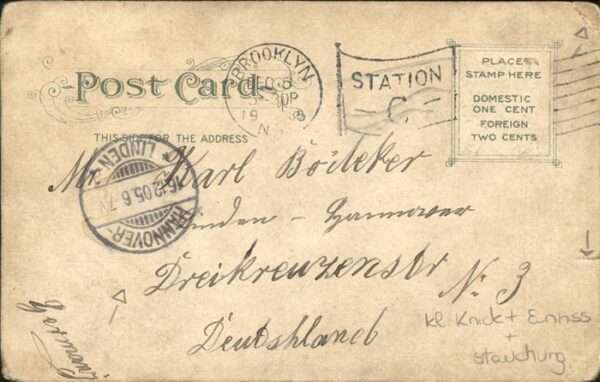 Post Card
THIS SIDE FOR THE ADDRESS
BROOKLYN
N
STATION
C
PLACE
STAMP HERE
DOMESTIC
ONE CENT
FOREIGN
TWO CENTS
LINDEN
15.12.05.6-7
HANNOVER-
Mr. Karl Bödeker
Linden - Hannover
Dreikreuzenstr N. 3
Deutschland
Germany
kl. Knick + Einriss
+
stauchung